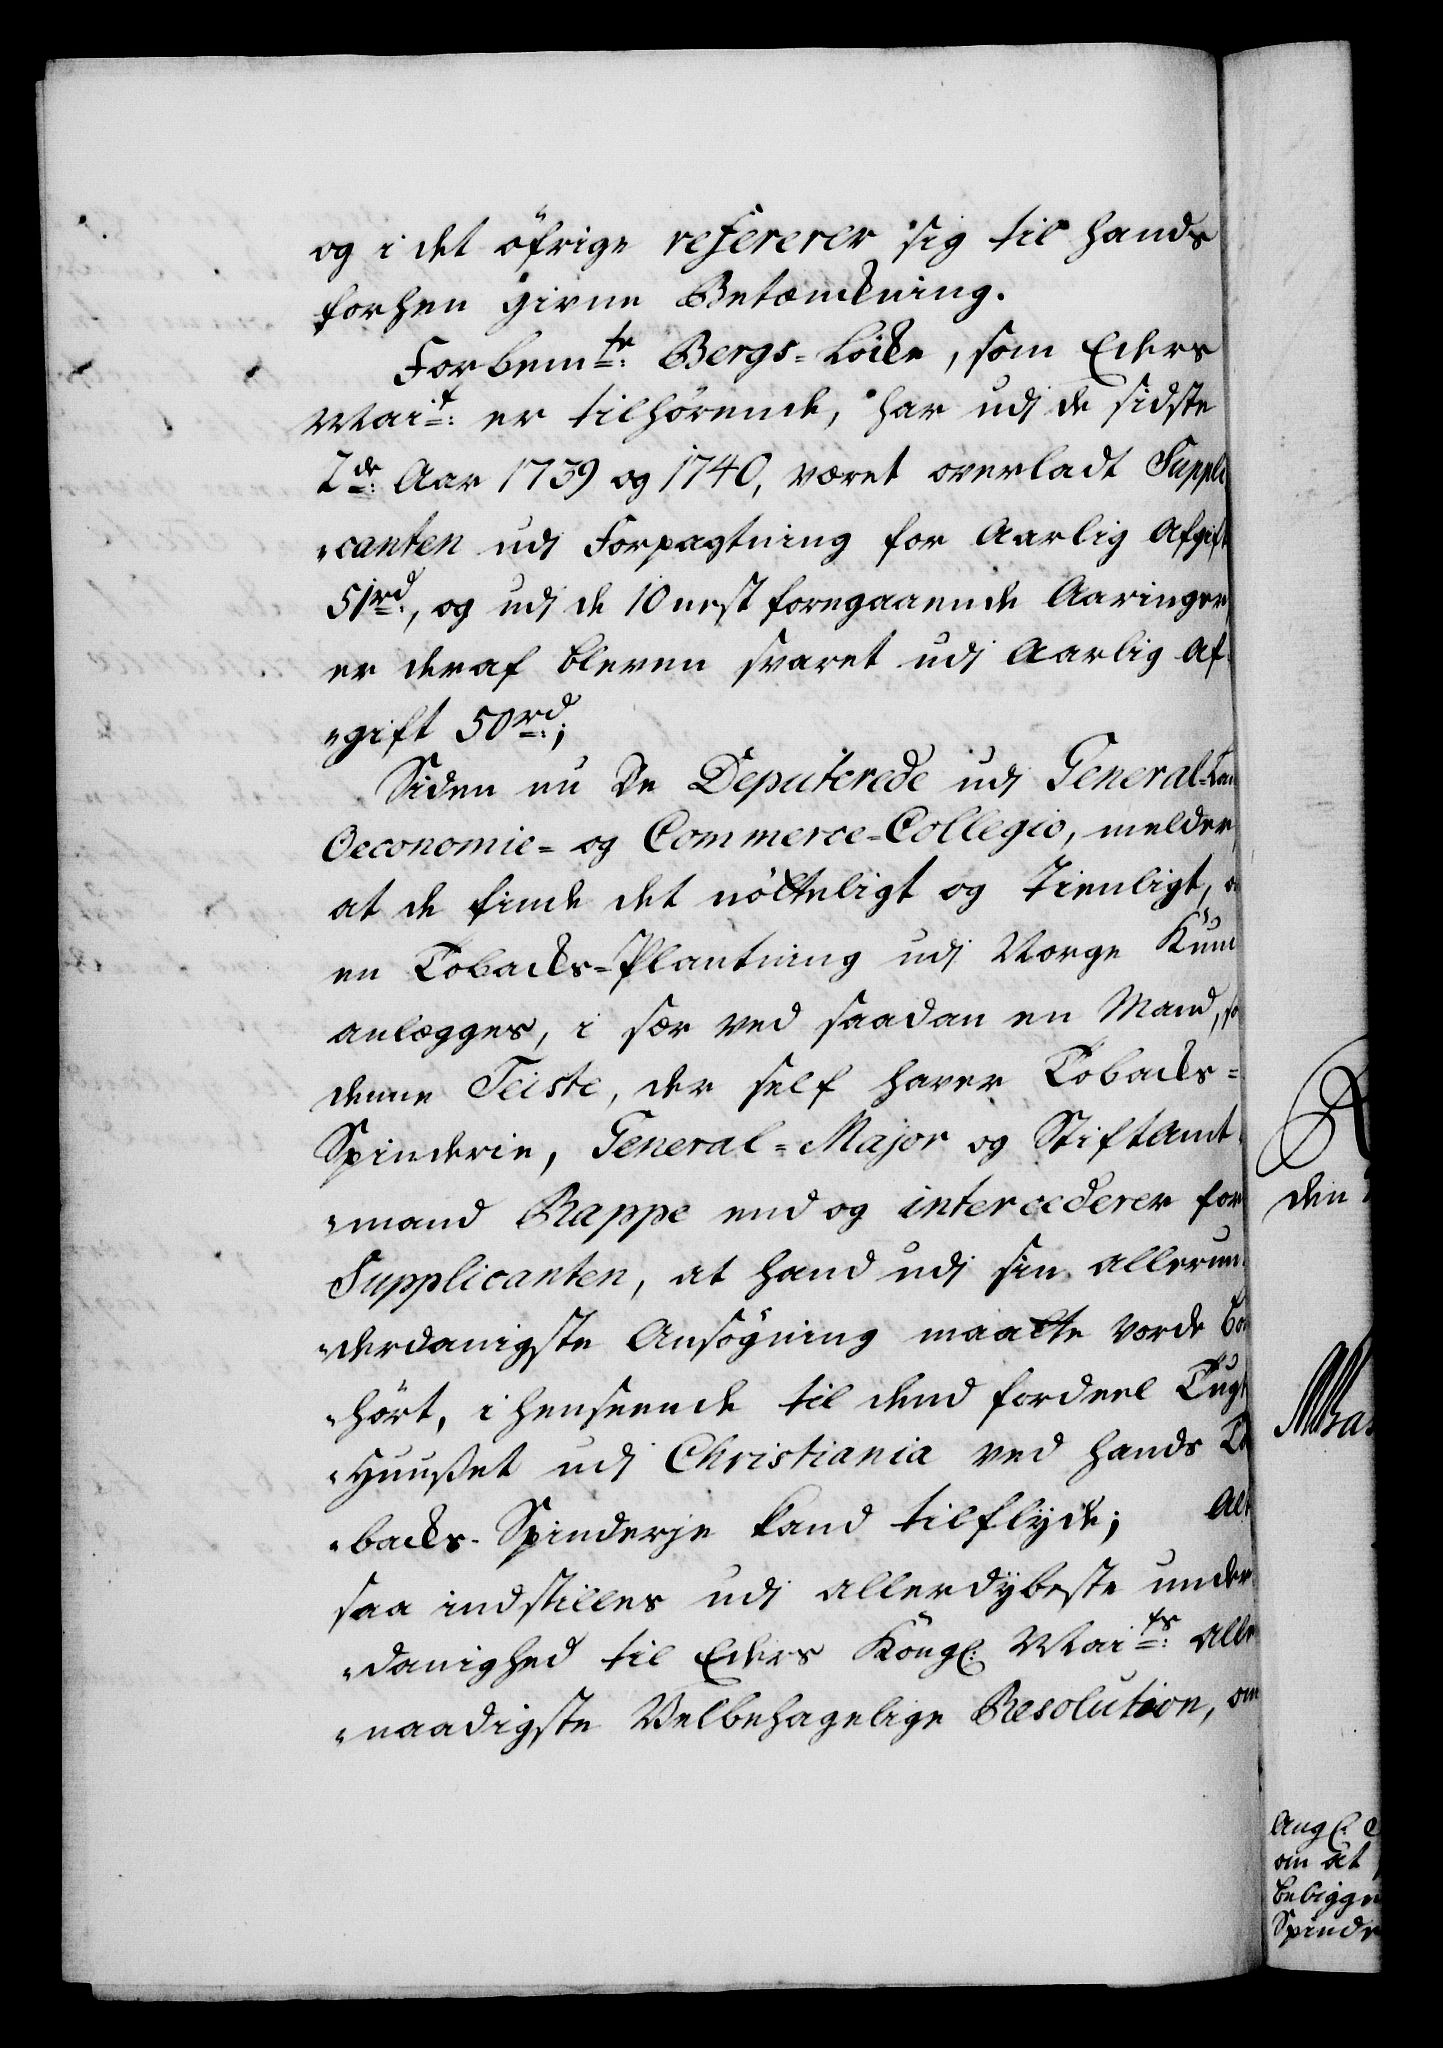 og i det öfrige refererer sig til hands
forhen givne Betænckning.
Forbem:te Bergs-Löcke, som Eders
Mai:t er tilhörende, har udj de sidste
2de: Aar 1739 og 1740, været overladt Suppli
"canten udj Forpagtning for Aarlig Afgift
51 rd:, og udj de 10 nest foregaaende Aaringer
er deraf bleven svaret udj Aarlig Af-
"gift 50 rd:;
Siden nu De Deputerede udj General-
Oeconomie- og Commerce-Collegio, melder,
at de finde det nötteligt og Tienligt,
en Tobacks-Plantning udj Norge Kun
anlægges, i sær ved saadan en Mand,
denne Teiste, der self haver Tobacks-
Spinderie, General-Major og Stiftamt-
"mand Rappe end og intercederer for
Supplicanten, at hand udj sin allerun-
"derdanigste Ansögning maatte vorde
"hört, i henseende til dend fordeel Tugt
"Huuset udj Christiania ved hands To
"backs-Spinderje kand tilflyde; Alt
saa indstilles udj allerdybeste under
"danighed til Eders Köngl: Mai:ts Aller
"naadigste Velbehagelige Resolution, om
den
Angl:
om at
bebigge
Spinde